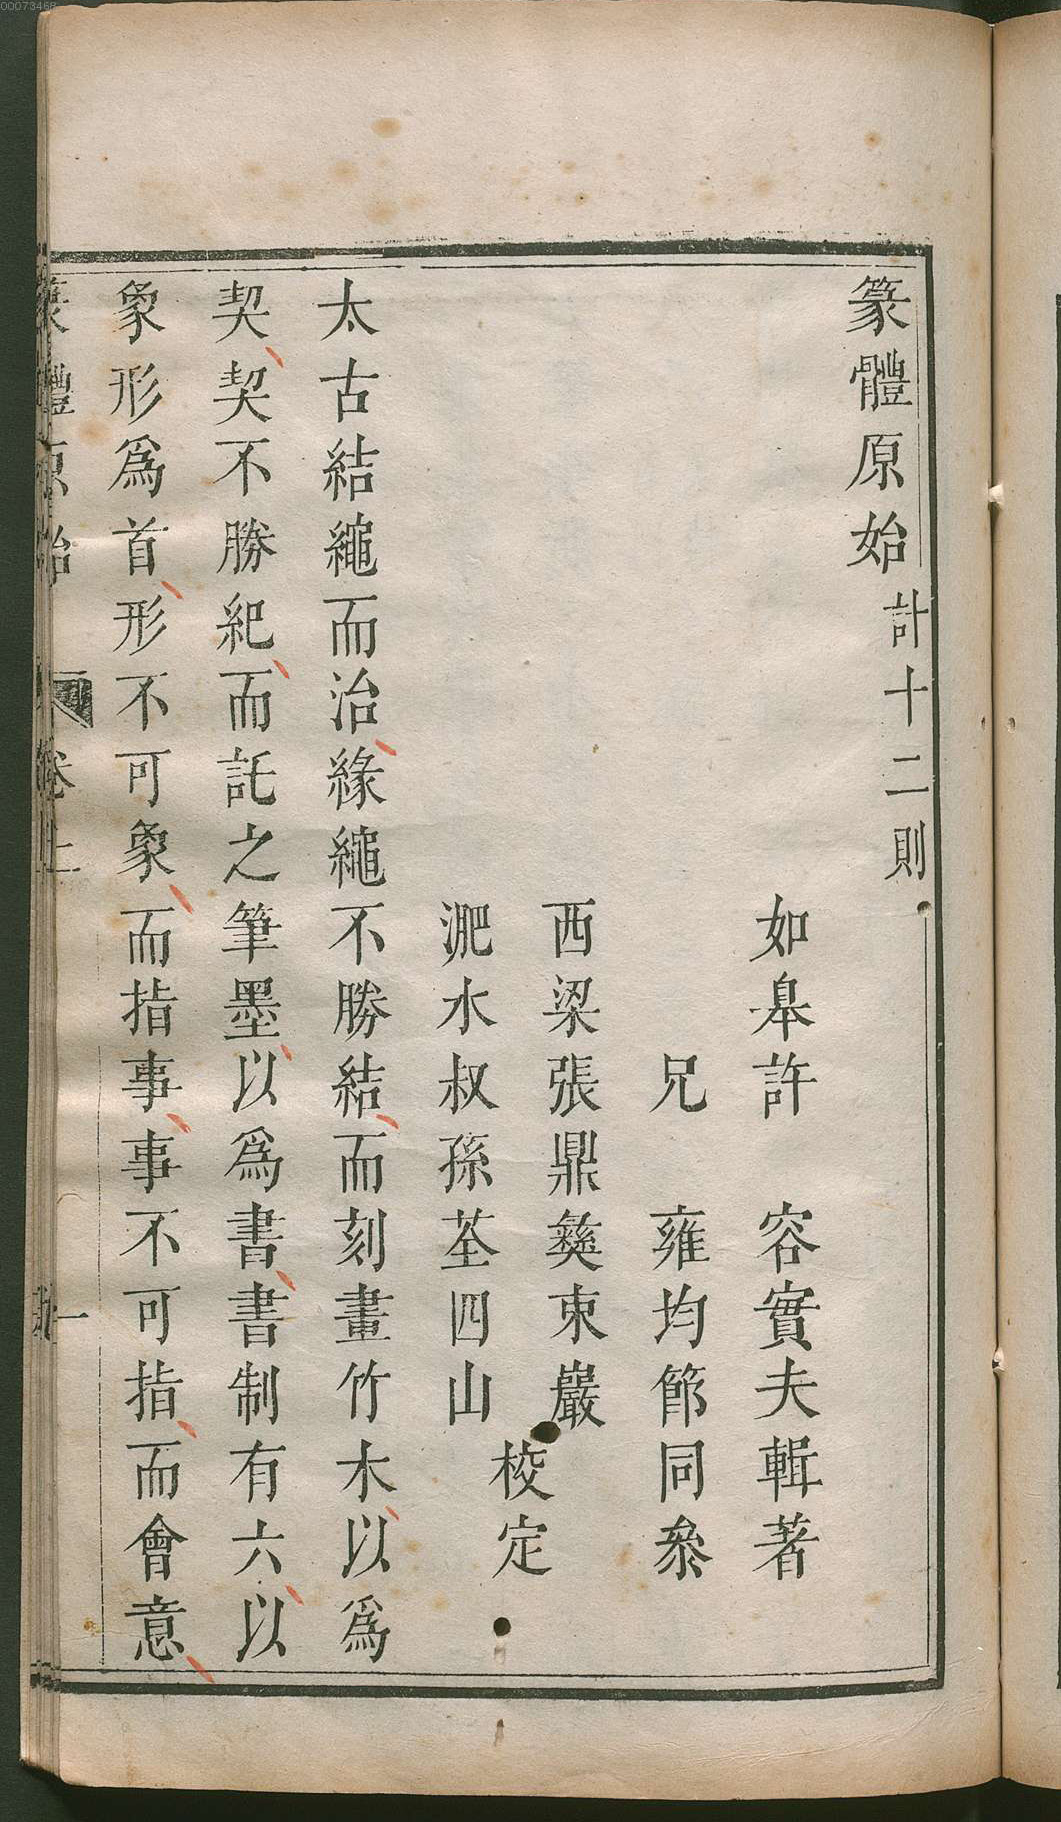 00073468
篆體原始計十二則
如皋許　容實夫輯著
兄　雍均節同叅
西梁張鼎彜東巖
淝水叔孫荃四山
校定
太古結繩而治緣繩不勝結而刻畫竹木以爲
契契不勝紀而託之筆墨以爲書書制有六以
象形爲首形不可象而指事事不可指而會意
篆體原始　卷上　一